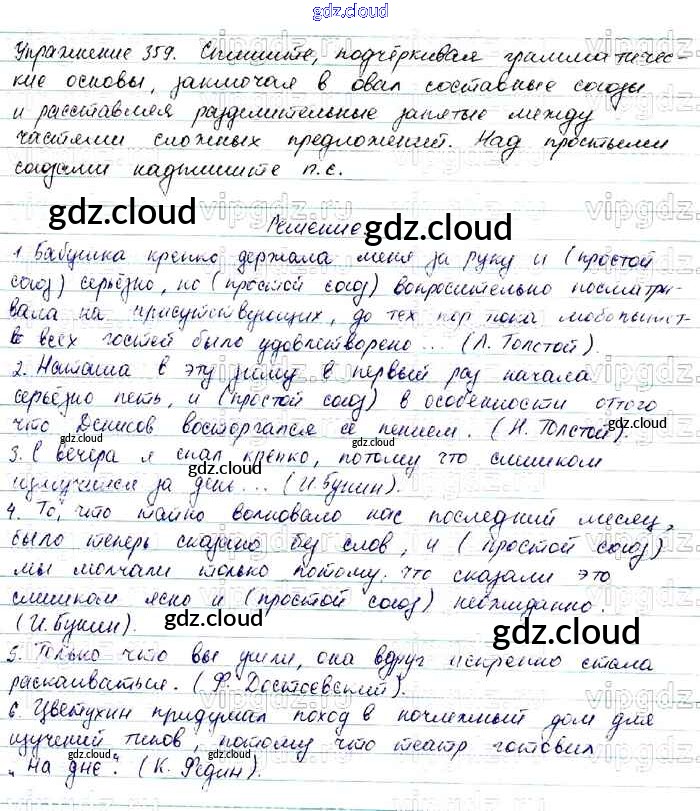 gdz.cloud
Упражнение 359. Спишите, подчёркивая граммaтичес-
кие основы, заключая в овал составные союзы
и расставляя разделительные запятые между
частями сложных предложений. Над простыми
союзами надпишите п.с.
gdz.cloud Решение gdz.cloud
1. Бабушка крепко держала меня за руку и (простой
союз) серьёзно, но (простой союз) вопросительно посматри-
вала на присутствующих, до тех пор пока любопытст-
во всех гостей было удовлетворено... (Л. Толстой).
2. Наташа в эту зиму в первый раз начала
серьёзно петь, и (простой союз) в особенности оттого
что Денисов восторгался её пением. (Н. Толстой).
gdz.cloud gdz.cloud
3. С вечера я спал крепко, потому что слишком
gdz.cloud
измучился за день... (И. Бунин).
4. То, что тайно волновало нас последний месяц,
было теперь сказано без слов, и (простой союз)
мы молчали только потому, что сказали это
слишком ясно и (простой союз) неожиданно.
(И. Бунин). gdz.cloud gdz.cloud
5. Только что вы ушли, она вдруг искренно стала
раскаиваться. (Ф. Достоевский).
6. Цветухин придумал поход в ночлежный дом для
изучений типов, потому что театр готовил
„На дне". (К. Федин).
gdz.cloud gdz.cloud